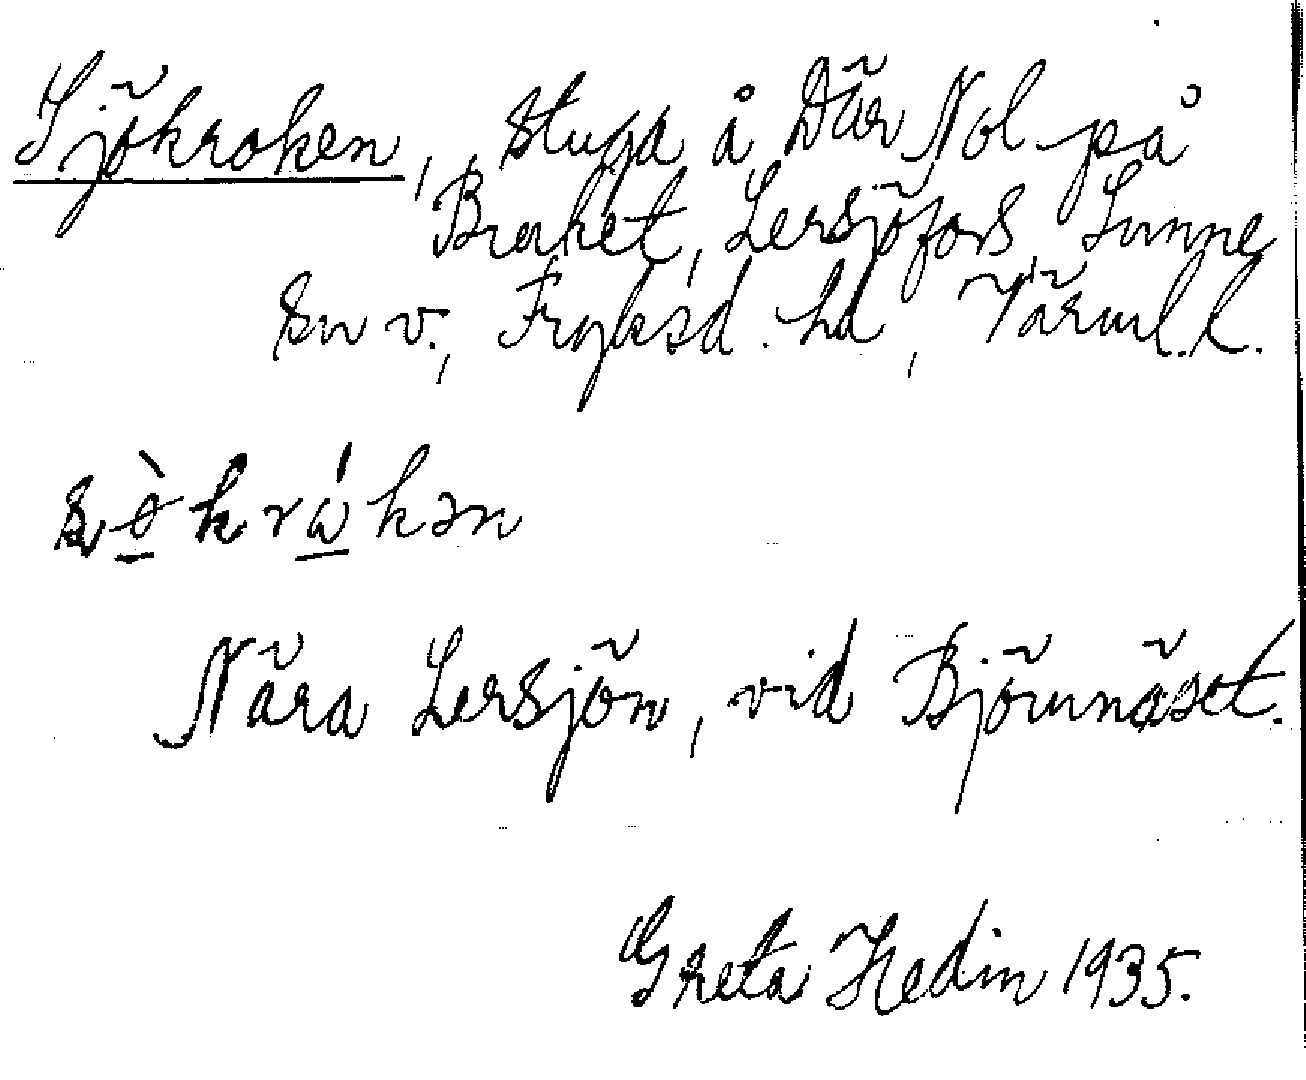 Sjökroken, stuga å Där Nol på
Braket, Lersjöfors, Sunne
sn v., Fryksd. hd, Värml. l.
sø̀krάkən
Nära Lersjön, vid Björnnäset.
Greta Hedin 1935.